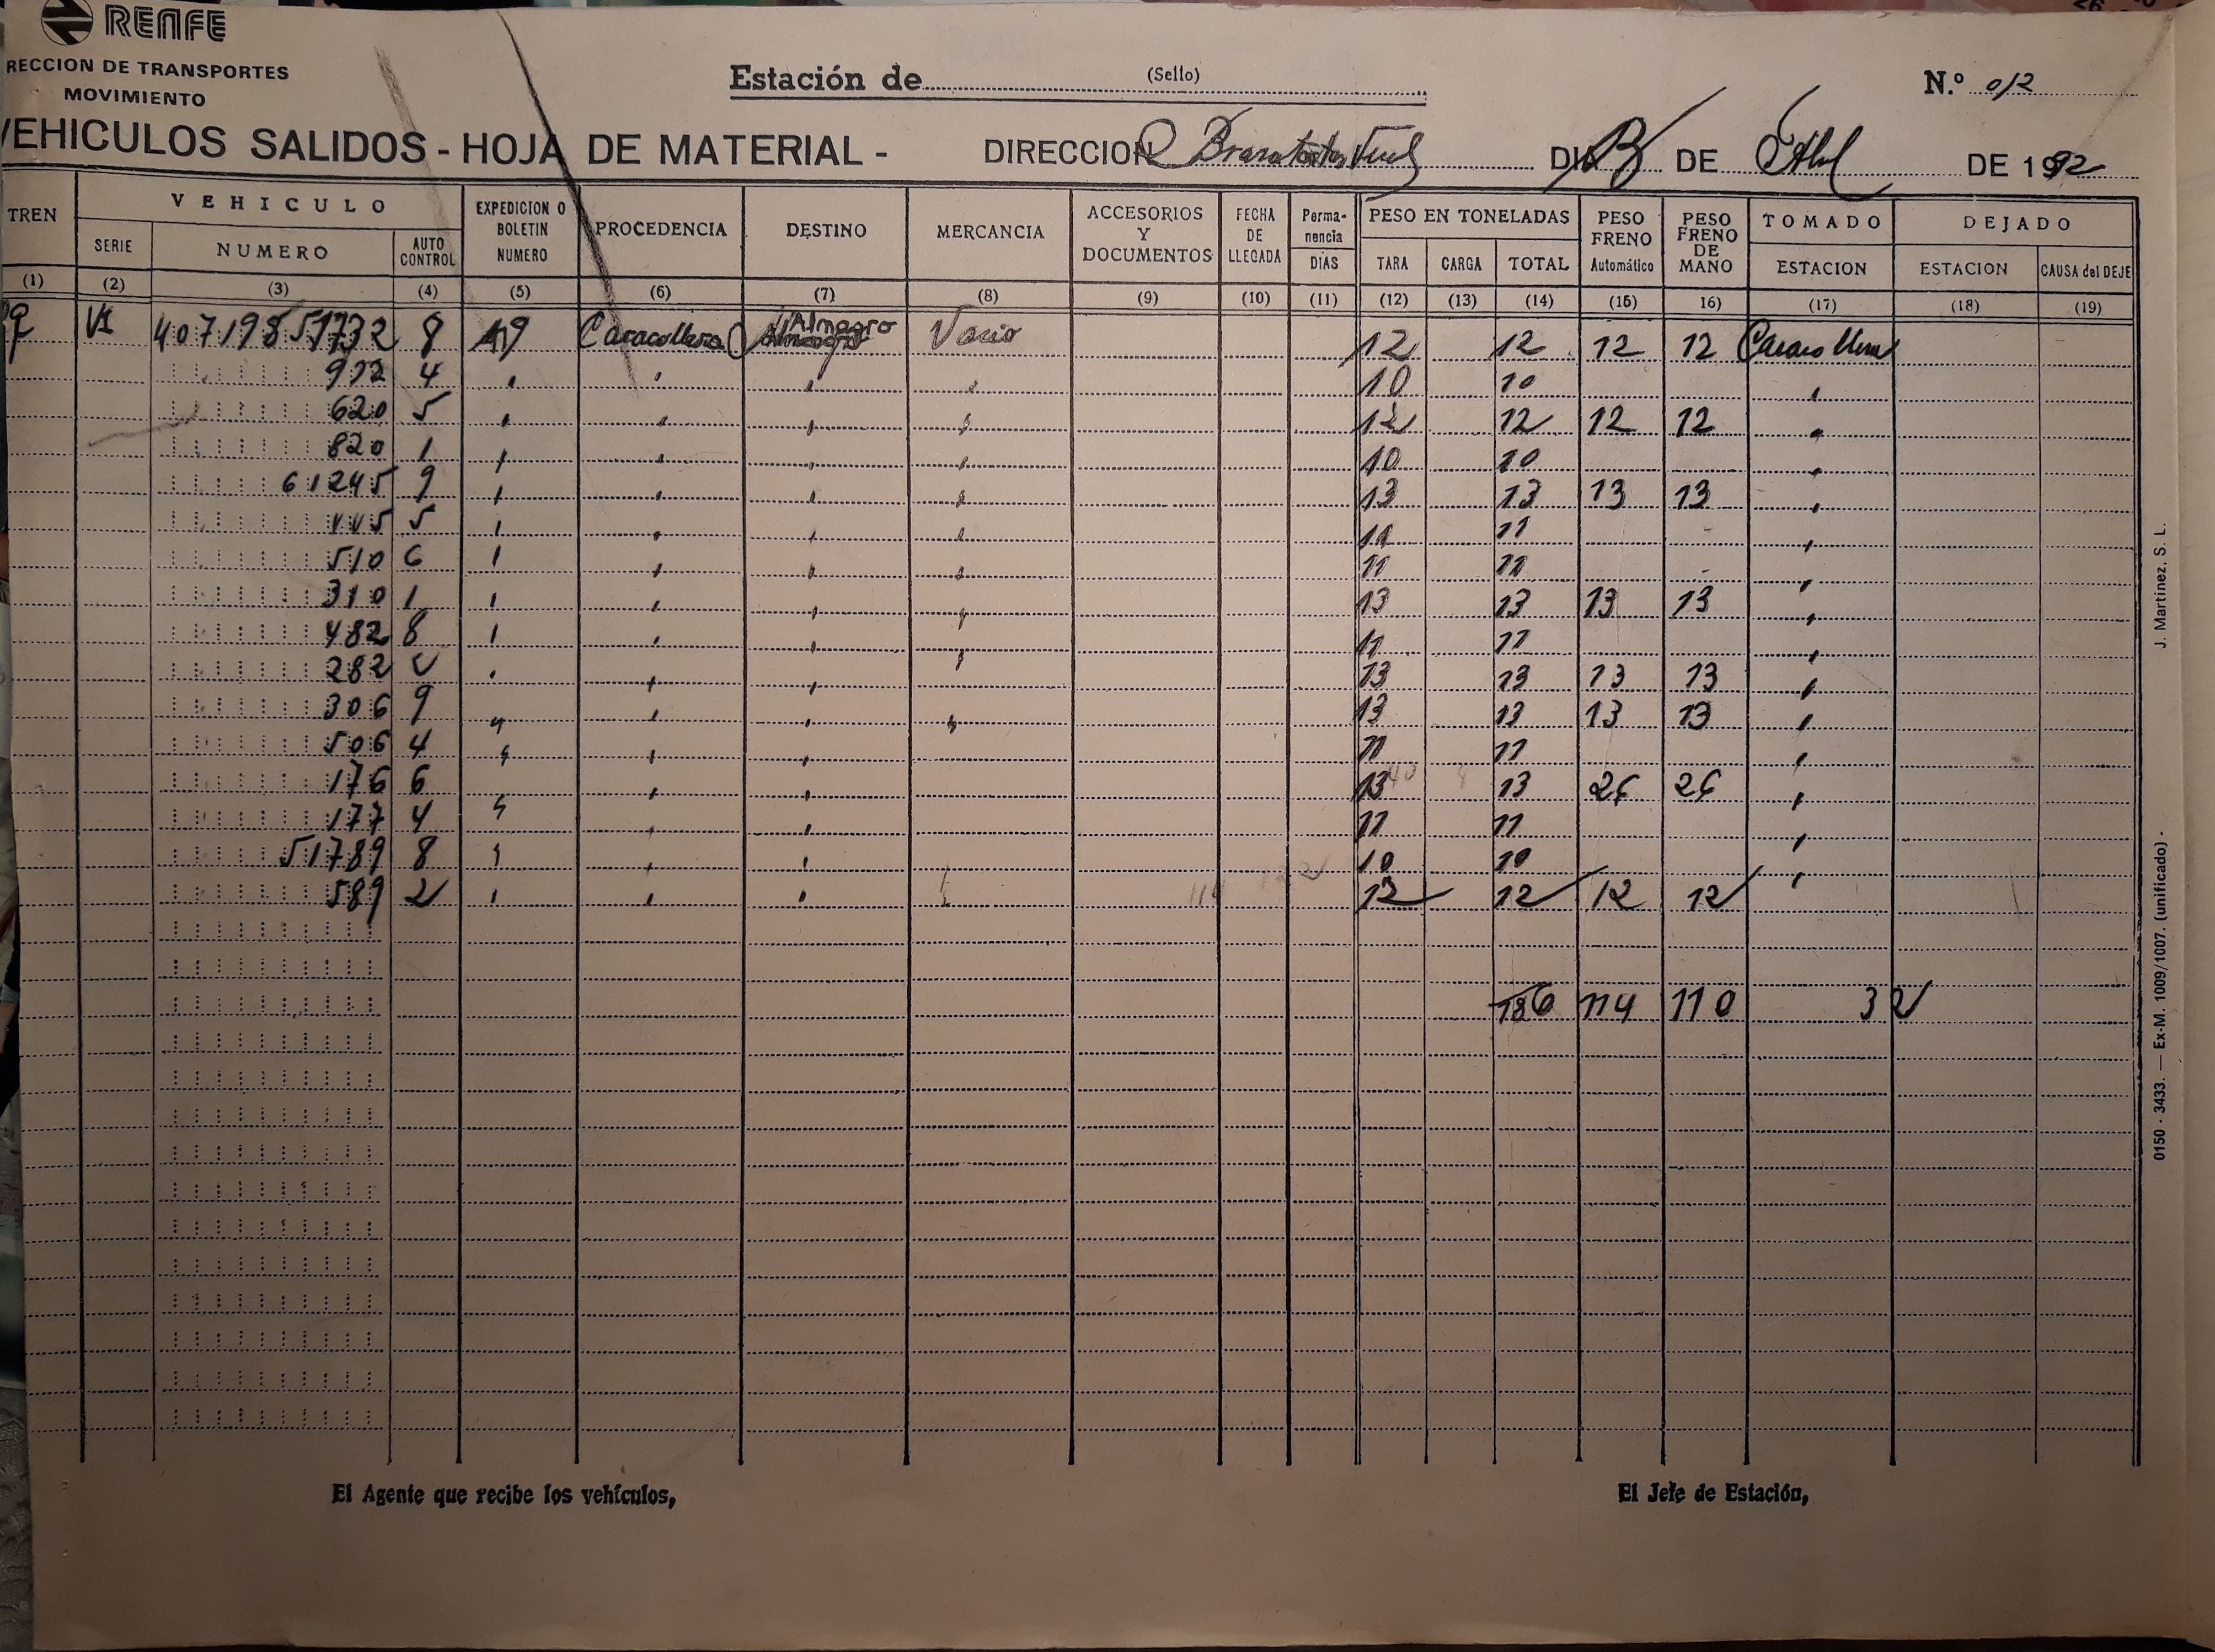 RENFE
RECCION DE TRANSPORTES
MOVIMIENTO
Estación de (Sello)
N.º 012
VEHICULOS SALIDOS - HOJA DE MATERIAL - DIRECCION DIA DE DE 1992
TREN VEHICULO EXPEDICION O BOLETIN NUMERO PROCEDENCIA DESTINO MERCANCIA ACCESORIOS Y DOCUMENTOS FECHA DE LLEGADA Perma-nencia DIAS PESO EN TONELADAS PESO FRENO Automático PESO FRENO DE MANO TOMADO DEJADO
SERIE NUMERO AUTO CONTROL TARA CARGA TOTAL ESTACION ESTACION CAUSA del DEJE
(1) (2) (3) (4) (5) (6) (7) (8) (9) (10) (11) (12) (13) (14) (15) 16) (17) (18) (19)
407198 51732 8 Caracollera Almagro Vacio 12 12 12 12 Caracollera
4 10 10
620 5 12 12 12 12
820 1 10 10
61245 9 13 13 13 13
5 11 11
510 6 11 11
310 1 13 13 13 13
482 8 11 11
282 13 13 13 13
306 9 13 13 13 13
506 4 11 11
176 6 13 13 26 26
177 4 11 11
51789 8 10 10
589 2 12 12 12 12
186 114 110 32
El Agente que recibe los vehículos,
El Jefe de Estación,
J. Martínez, S. L.
0150 - 3433. — Ex-M. 1009/1007. (unificado) -